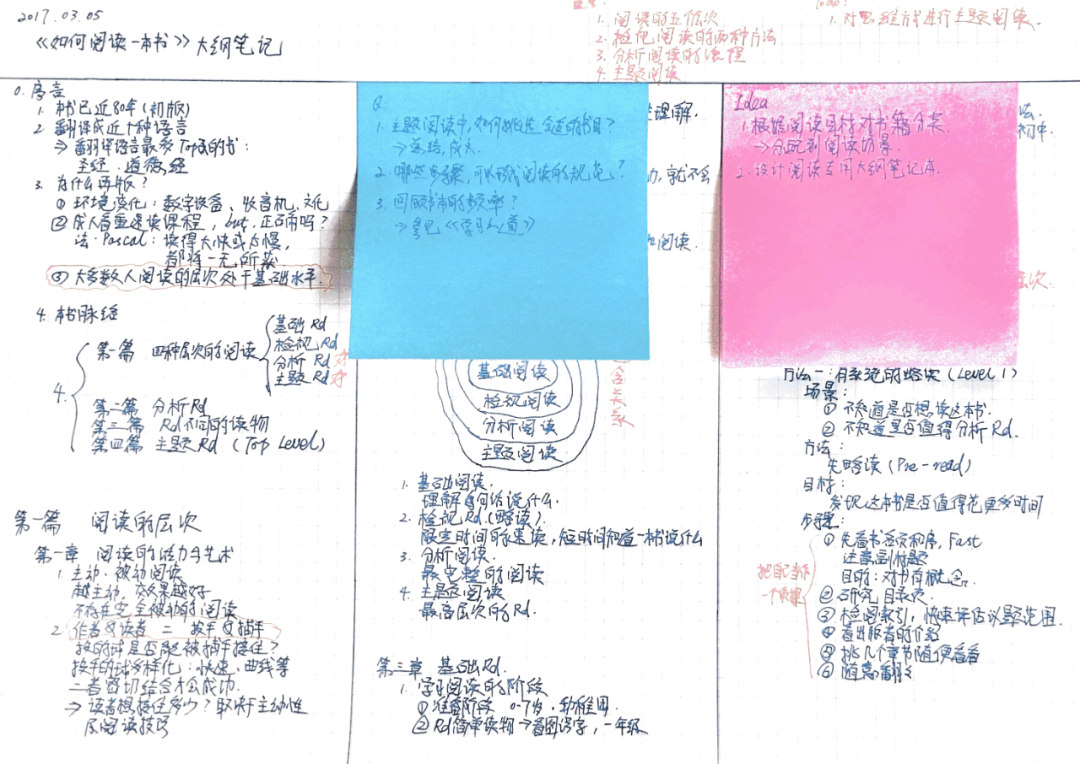 2017.03.05
《如何阅读一本书》大纲笔记
1. 阅读的五个层次
2. 检视阅读的两种方法
3. 分析阅读的流程
4. 主题阅读
1. 对思维方式进行主题阅读.
0. 序言
1. 本书已近80年(初版)
2. 翻译成近十种语言
⇒翻译语言最多Top级的书:
圣经、道德经
3. 为什么再版?
① 环境变化:数字设备、收音机、文化
② 成人看重速读课程, but, 正确吗?
法·Pascal: 读得太快或太慢,
都将一无所获
③ 大多数人阅读的层次处于基础水平.
4. 本书脉络
4.
第一篇 四种层次的阅读
基础Rd
检视Rd
分析Rd
主题Rd
第二篇 分析Rd
第三篇 Rd不同的读物
第四篇 主题Rd (Top Level)
第一篇 阅读的层次
第一章 阅读的活力与艺术
1. 主动·被动阅读
越主动, 效果越好
不存在完全被动的阅读
2. 作者&读者 = 投手&捕手
投的球是否能被捕手接住?
投手的球多样化: 快速、曲线等
二者密切结合才会成功.
⇒ 读者想接住多少? 取决于主动性
及阅读技巧
Q.
1. 主题阅读中, 如何挑选合适的书目?
2. 哪些步骤, 可以形成阅读的规范?
3. 回顾书本的频率?
→参见《学习之道》
理解.
力, 就不会
阅读.
基础阅读
检视阅读
分析阅读
主题阅读
1. 基础阅读.
理解每句话说什么.
2. 检视Rd.(略读).
限定时间的速读, 短时间知道一本书说什么
3. 分析阅读.
最完整的阅读
4. 主题阅读
最高层次的Rd.
第三章 基础Rd.
1. 学习阅读的阶段
① 准备阶段 0-7岁, 幼稚园.
② Rd简单读物→看图识字, 一年级
Idea
1. 根据阅读目标对书籍分类
→分配到阅读场景.
2. 设计阅读专用大纲笔记本.
层次.
方法一: 有系统的略读 (Level 1)
场景:
① 不知道是否想读这本书.
② 不知道是否值得分析Rd.
方法:
先略读 (Pre-read)
目标:
发现这本书是否值得花更多时间
步骤:
① 先看书名页和序, Fast
注意副标题
目的: 对书有概念.
② 研究目录页
③ 检阅索引, 快速评估议题范围.
④ 看出版者的介绍
⑤ 挑几个章节随便看看
⑥ 随意翻翻